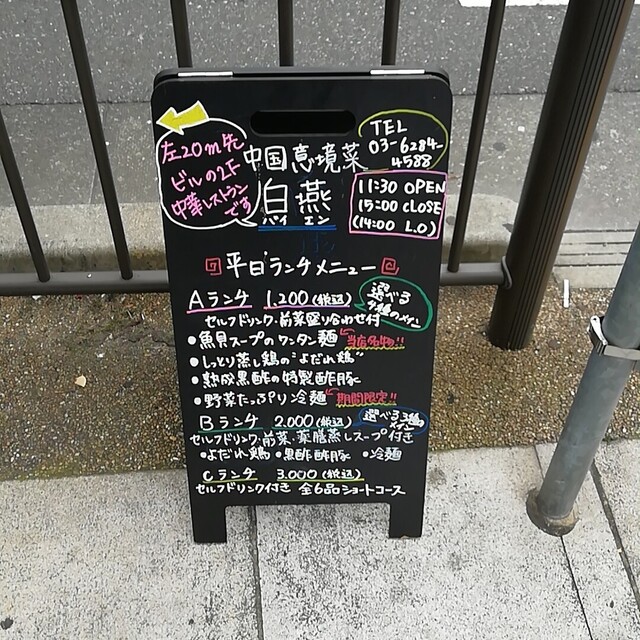 左20m先
ビルの2F
中華レストラン
です
中国意境菜
白燕
バイ エン
TEL
03-6284-
4588
11:30 OPEN
15:00 CLOSE
(14:00 L.O)
平日ランチメニュー
Aランチ 1,200(税込)
選べる
4種のメイン
セルフドリンク・前菜盛り合わせ付
•魚貝スープのワンタン麺 当店名物!!
•しっとり蒸し鶏の"よだれ鶏"
•熟成黒酢の特製酢豚
•野菜たっぷり冷麺 期間限定!!
Bランチ 2,000(税込)
選べる3種
メイン
セルフドリンク・前菜・薬膳蒸しスープ付き
•よだれ鶏 •黒酢酢豚 •冷麺
Cランチ 3,000(税込)
セルフドリンク付き 全6品ショートコース